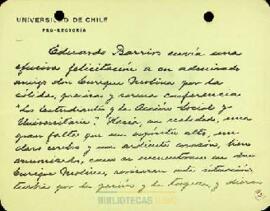 UNIVERSIDAD DE CHILE
PRO-RECTORÍA
Eduardo Barrios envía una
efusiva felicitación a su admirado
amigo don Enrique Molina por la
sólida, precisa y serena conferencia
"Los Estudiantes y la Acción Social y
Universitaria". Hacía, en realidad, una
gran falta que un espíritu alto, un
claro cerebro y un ardiente corazón, bien
armonizados, como se encuentran en don
Enrique Molina,
BIBLIOTECAS